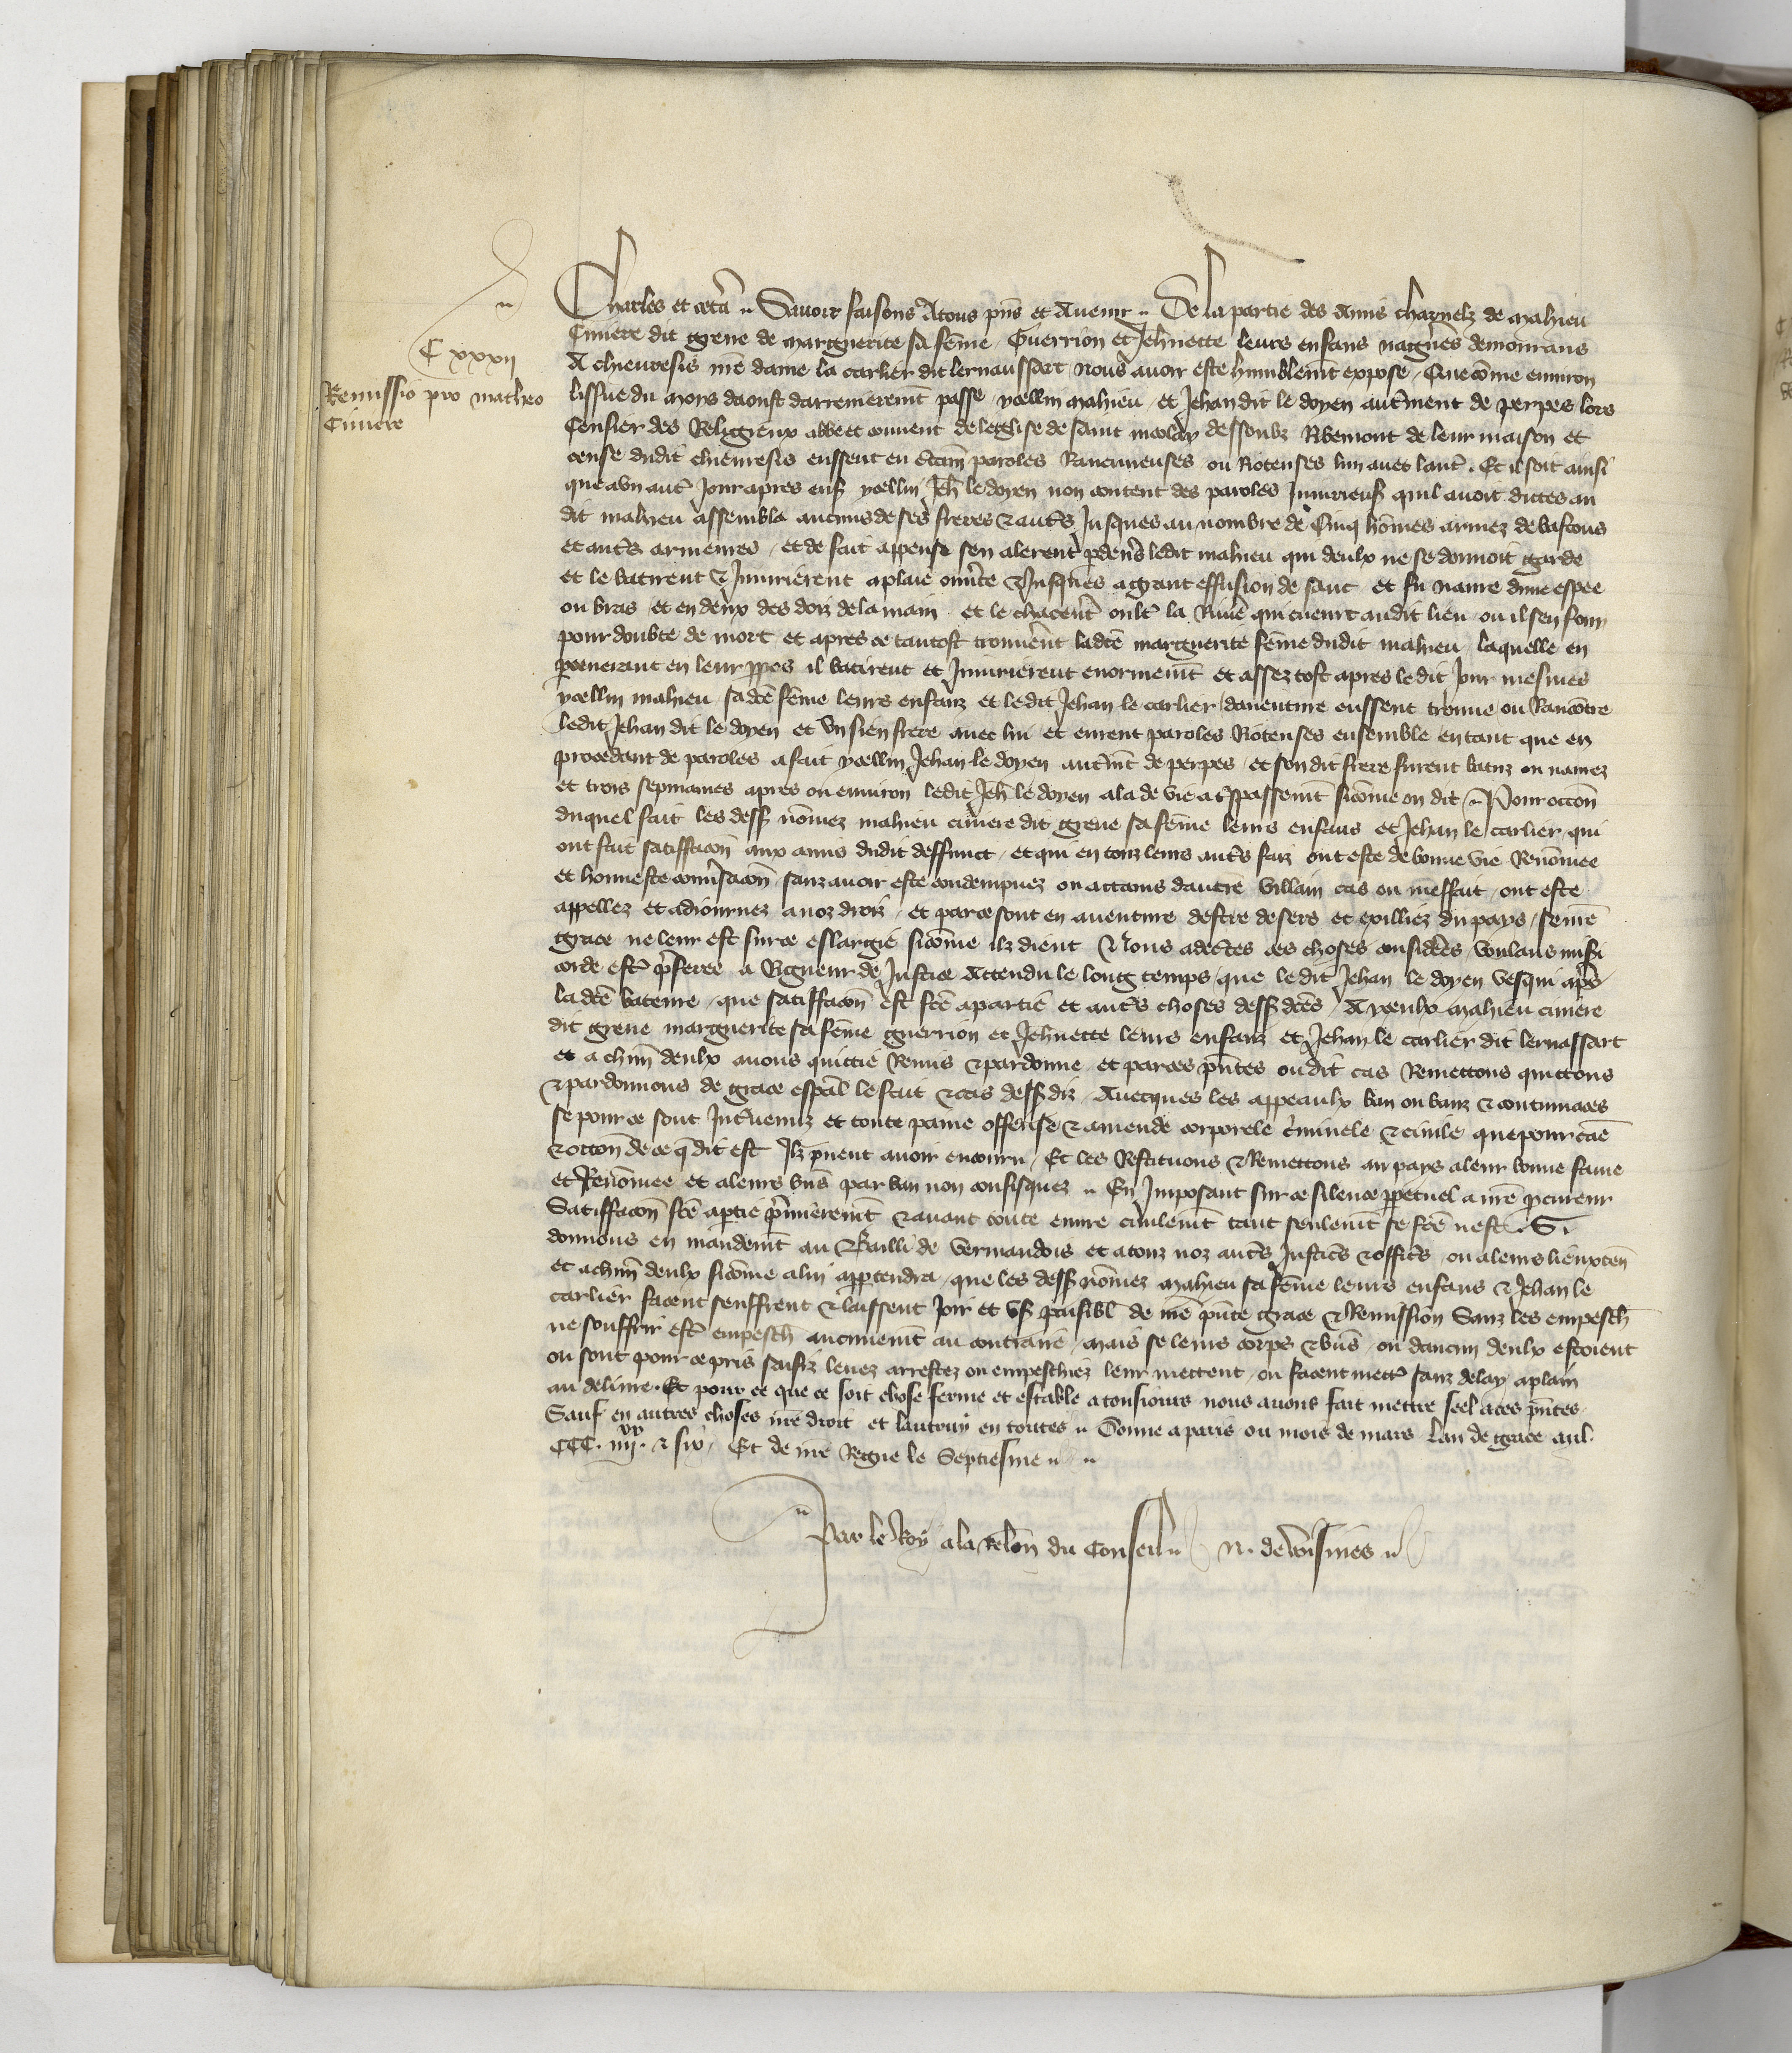 C xxxii
Remissio pro matheo
Cimere
Charles et cetera. Savoir faisons a tous pñs et avenir. De la partie des amis charnelz de mahieu
Cimere dit grene de marguerite sa fẽme Guerrion et Jehñette leurs enfans nagũes demourans
A chieuresis mẽ dame la carlier dit lernaussart nous avoir este humblemẽt expose, Que cõme environ
lissue du moys daoust darrenieremẽt passe, ycellui mahieu, et Jehan dit le doyen autmẽnt de perpes lors
Censier des Religieux abbe et convent de leglise de saint nicolay dessoubz Ribemont de leur maison et
cense dudit chieuresis eussent eu ctaĩs paroles Rancuneuses ou Rioteuses lun avec laut. Et il soit ainsi
que a un aut Jour apres ens ycellui Jeh le doyen non content des paroles Jnjurieuses quil avoit dictes au
dit mahieu assembla aucuns de ses freres et auts Jusques au nombre de Cinq hõmes armez de bastons
et auts armeures, et de fait appense sen alerent pdevs ledit mahieu qui deulx ne se donnoit garde
et le batirent et Jnjurierent a plaie ouvte et Jusques a grant effusion de sanc et fu navre dune espee
ou bras et en deux des doiz de la main et le chacerẽt oult la Riviẽ qui cueurt audit lieu ou il sen fouy
pour doubte de mort et apres ce tantost trouverẽt ladcẽ marguerite fẽme dudit mahieu, laquelle en
perseverant en leur ppos il batirent et Jnjurierent enormemẽt et assez tost apres ledit Jour mesmes
ycellui mahieu sadcẽ fẽme leurs enfanz et ledit Jehan le carlier daventure eussent trouve ou Rancõtre
ledit Jehan dit le doyen et un sien frere avec lui et eurent paroles Rioteuses ensemble en tant que en
procedant de paroles a fait ycellui Jehan le doyen autmẽt de perpes, et son dit frere furent batuz ou navrez
et trois sepmaines apres ou environ ledit Jeh le doyen ala de vie a tspassemẽt sicõme on dit. Pour occõn
duquel fait les dess nõmez mahieu cimere dit grene sa fẽme leurs enfans et Jehan le carlier, qui
ont fait satiffacõn aux amis dudit deffunct, et qui en touz leurs auts faiz ont este de bonne vie Renõmee
et honneste convsacõn sanz avoir este condempnez ou actains dautre villain cas ou meffait, ont este
appellez et adiournez a noz droiz, et par ce sont en aventure destre desers et exilliez du pays, se nrẽ
grace ne leur est sur ce eslargie sicõme ilz dient Nous adectes ces choses considẽes, voulans misẽi
corde estre pferee a Rigueur de Justice Attendu le long temps que ledit Jehan le doyen vesqui aps
ladcẽ bateure, que satiffacõn est fcẽ a partie et auts choses dess dcẽs, A yceulx mahieu cimere
dit grene marguerite sa fẽme guerrion et Jehñette leurs enfanz et Jehan le carlier dit lernassart
et a chũn deulx avons quittie Remis et pardonne et par ces pñtes oudit cas Remettons quictons
et pardonnons de grace espãl le fait et cas dess diz, Avecques les appeaulx ban ou banz et contumaces
se pour ce sont Jntvenuz et toute paine offense et amende corporele cminele et civile que pour cãe
et occõn de ce q dit est Ilz puent avoir encouru, Et les Restituons et Remettons au pays a leur bonne fame
et Renõmee et a leurs bñs par ban non confisquez. En Jmposant sur ce silence ppetuel a nrẽ pcureur
Satiffacõn fcẽ a ptie pmieremẽt et avant toute euvre civilemẽt tant seulemẽt se fcẽ nest. Si
donnons en mandemẽt au Bailli de Vermandois et a touz noz auts Justics et offics, ou a leurs lieuxteñ
et a chũn deulx sicõme a lui appartendra, que les dess nõmez mahieu sa fẽme leurs enfans et Jehan le
carlier facent seuffrent et laissent Joir et us paisibl de nrẽ pñte grace et Remission Sanz les empesch
ne souffrir est empesch aucunemẽt au contraire, mais se leurs corps et biñs, ou daucun deulx estoient
ou sont pour ce pris saisiz levez arrestez ou empeschiez leur mettent, ou facent mett sanz delay a plain
au delivre. Et pour ce que ce soit chose ferme et estable a tousiours nous avons fait mettre seel a ces pñtes
Sauf en autres choses nrẽ droit et lautruy en toutes. Donne a paris ou mois de mars Lan de grace mil
CCC. iiii xx. et six, Et de nrẽ Regne le Septiesme.
Par le Roy a la relõn du Conseil N. de voisines